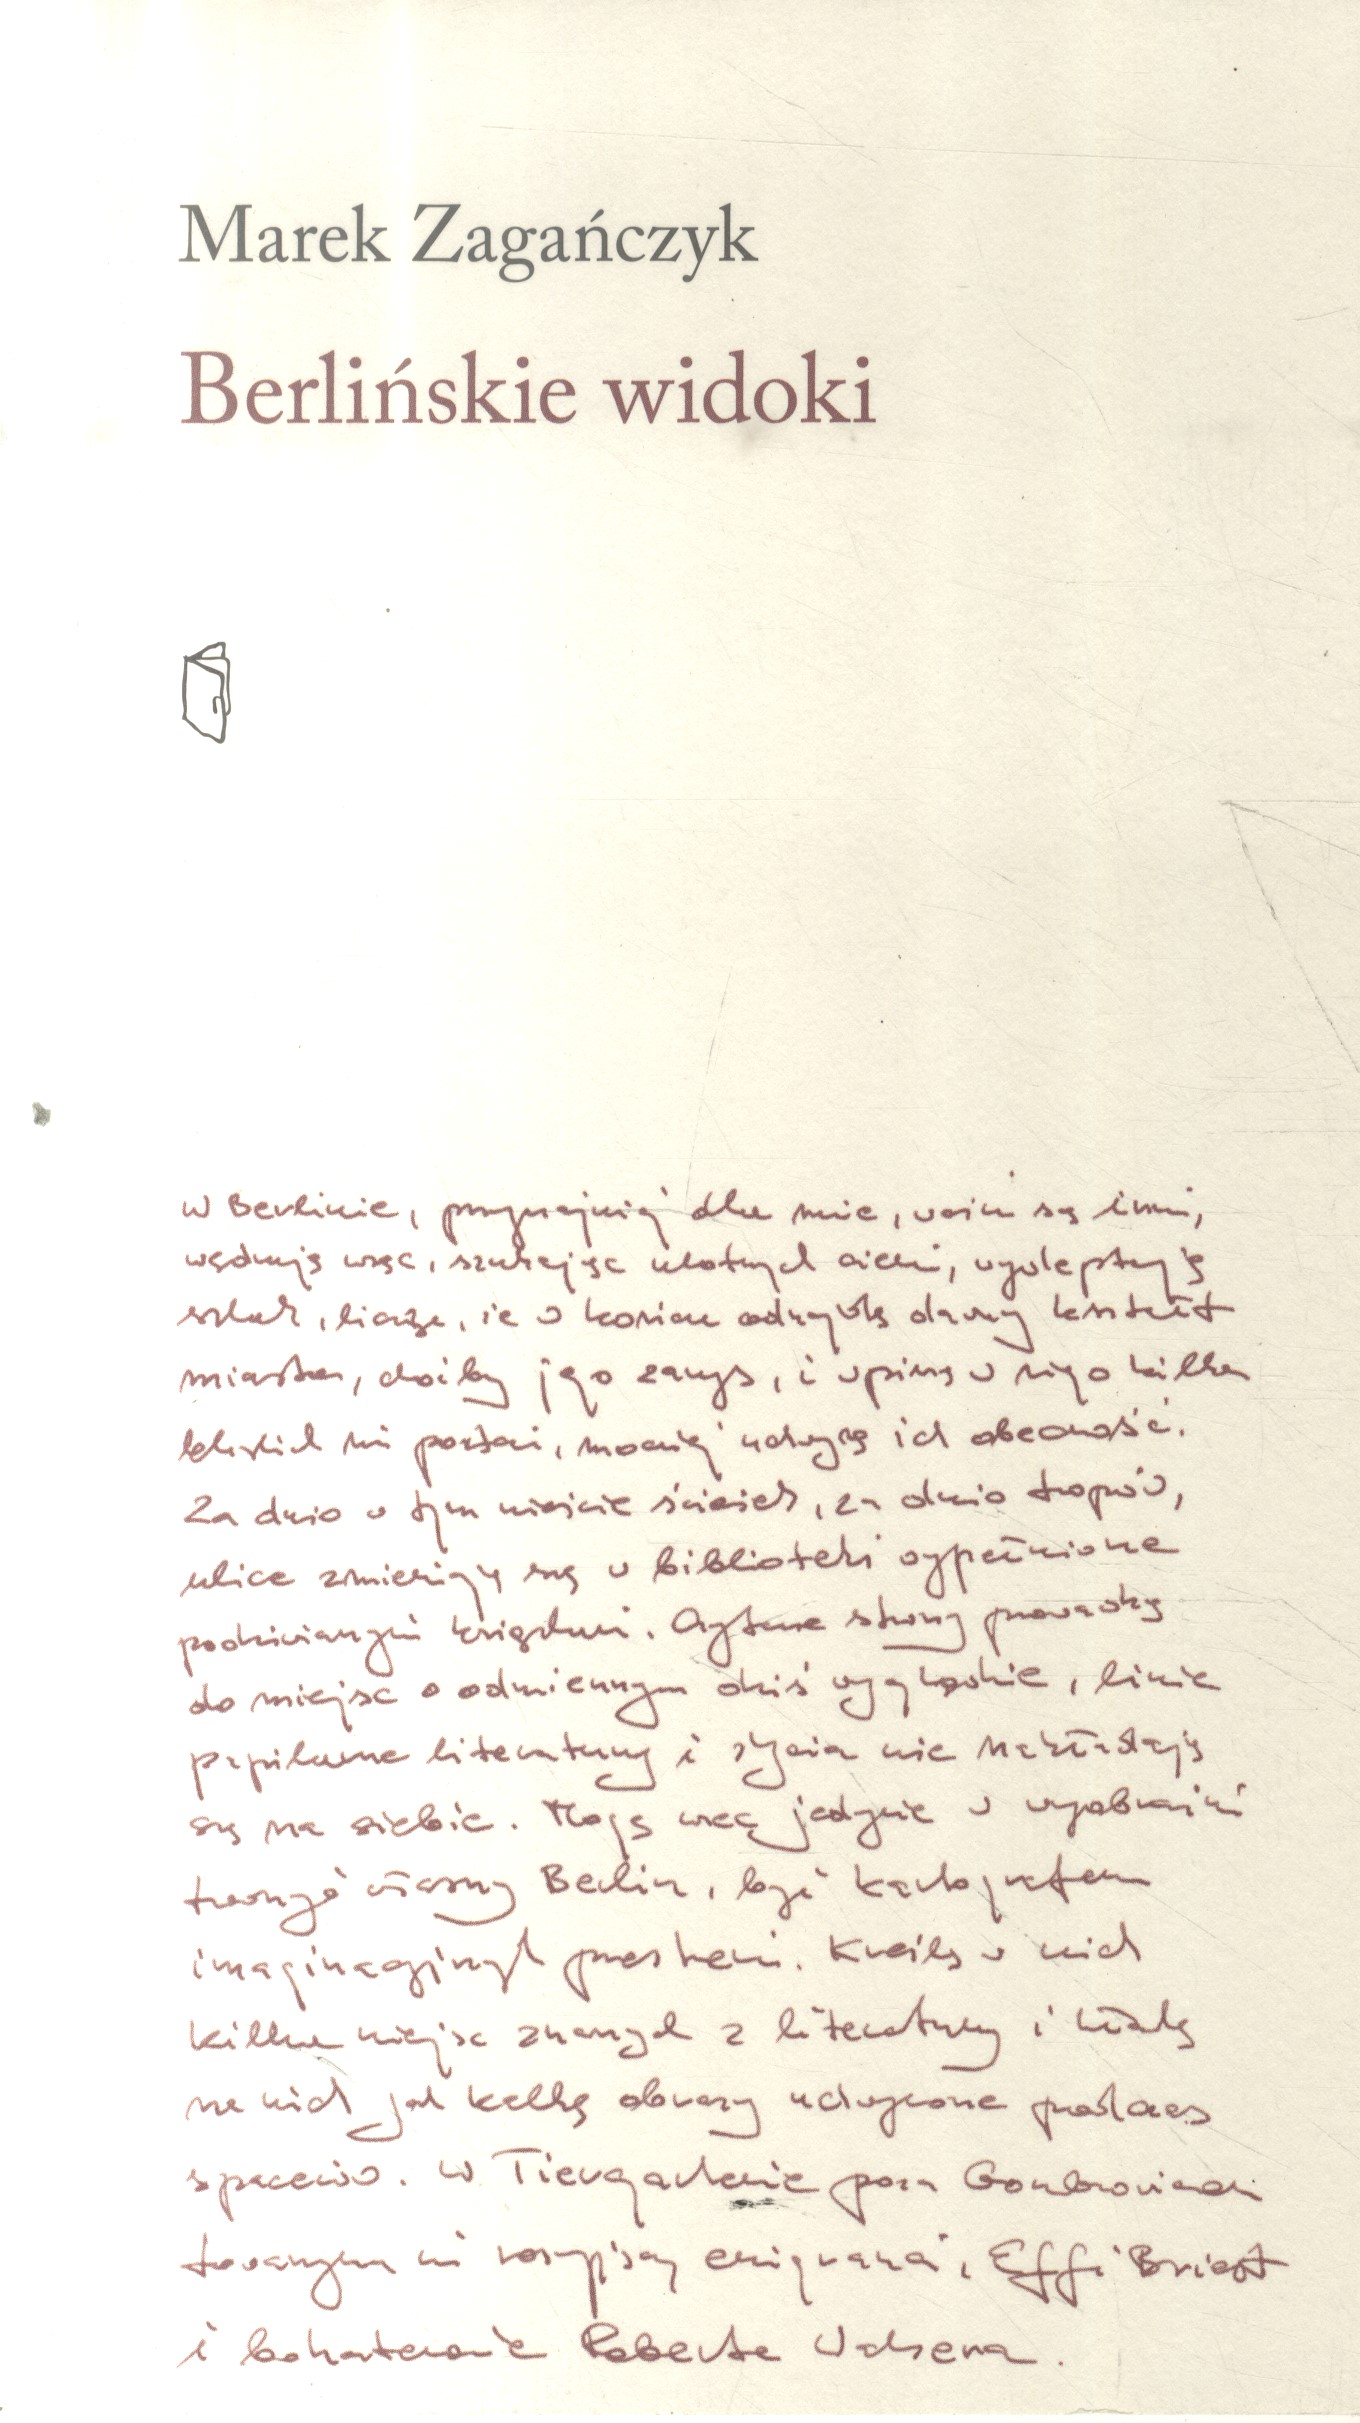 Marek Zagańczyk
Berlińskie widoki
W Berlinie, przynajmniej dla mnie, ważni są inni,
wędruję więc, szukając ulotnych cieni, wydeptuję
szlak, licząc, że w końcu odzyska dawny kształt
miasta, choćby jego zarys, i wpiszę w niego kilka
bliskich mi postaci, mocniej uchwycę ich obecność.
Za dużo w tym mieście ścieżek, za dużo tropów,
ulice zmieniają się w biblioteki wypełnione
podziwianymi książkami. Czytane strony prowadzą
do miejsc o odmiennym dziś wyglądzie, linie
papilarne literatury i życia nie nakładają
się na siebie. Mogę więc jedynie w wyobraźni
tworzyć własny Berlin, być kartografem
imaginacyjnych przestrzeni. Kreślę w nich
kilka miejsc znanych z literatury i kładę
na nich jak kalkę obrazy uchwycone podczas
spacerów. W Tiergartenie poza Gombrowiczem
towarzyszą mi rosyjscy emigranci, Effi Briest
i bohaterowie Roberta Walsera.